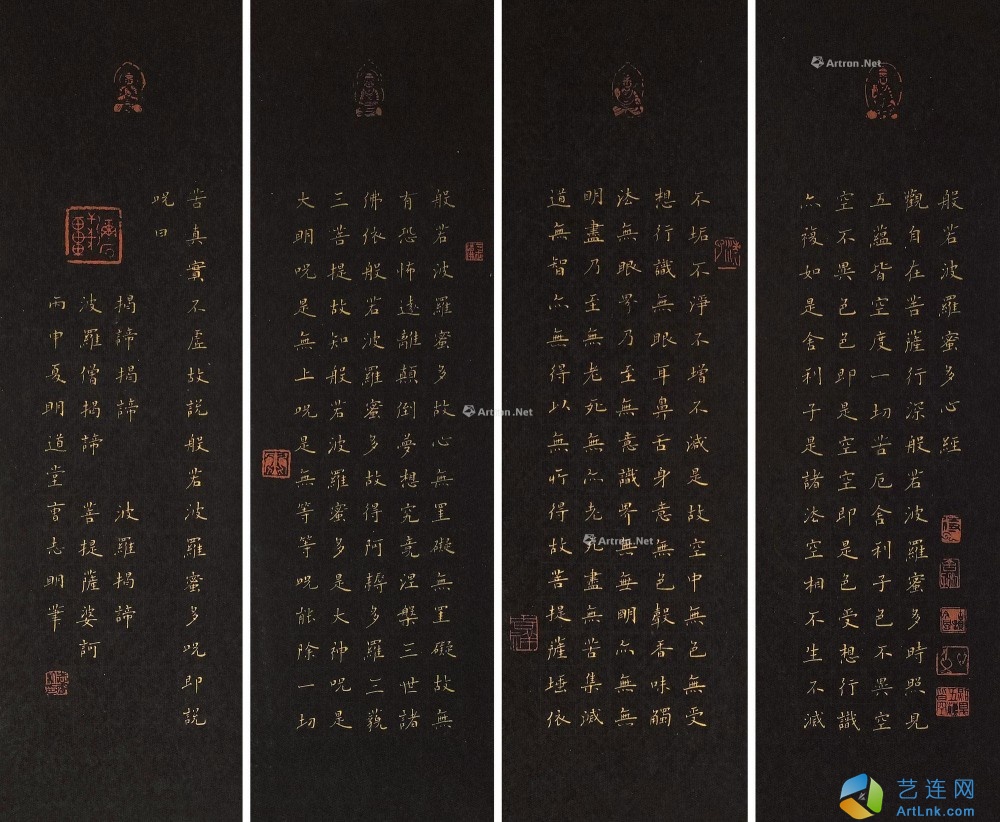 般若波羅蜜多心經
觀自在菩薩行深般若波羅蜜多時照見
五蘊皆空度一切苦厄舍利子色不異空
空不異色色即是空空即是色受想行識
亦復如是舍利子是諸法空相不生不滅
不垢不淨不增不減是故空中無色無受
想行識無眼耳鼻舌身意無色聲香味觸
法無眼界乃至無意識界無無明亦無無
明盡乃至無老死無亦老死盡無苦集滅
道無智亦無得以無所得故菩提薩埵依
般若波羅蜜多故心無罣礙無罣礙故無
有恐怖遠離顛倒夢想究竟涅槃三世諸
佛依般若波羅蜜多故得阿耨多羅三藐
三菩提故知般若波羅蜜多是大神呪是
大明呪是無上呪是無等等呪能除一切
苦真實不虛故說般若波羅蜜多呪即說
呪曰
揭諦揭諦 波羅揭諦
波羅僧揭諦 菩提薩婆訶
丙申夏明道堂書志明筆
Artron.Net
Artron.Net
Artron.Net
艺连网
ArtLnk.com